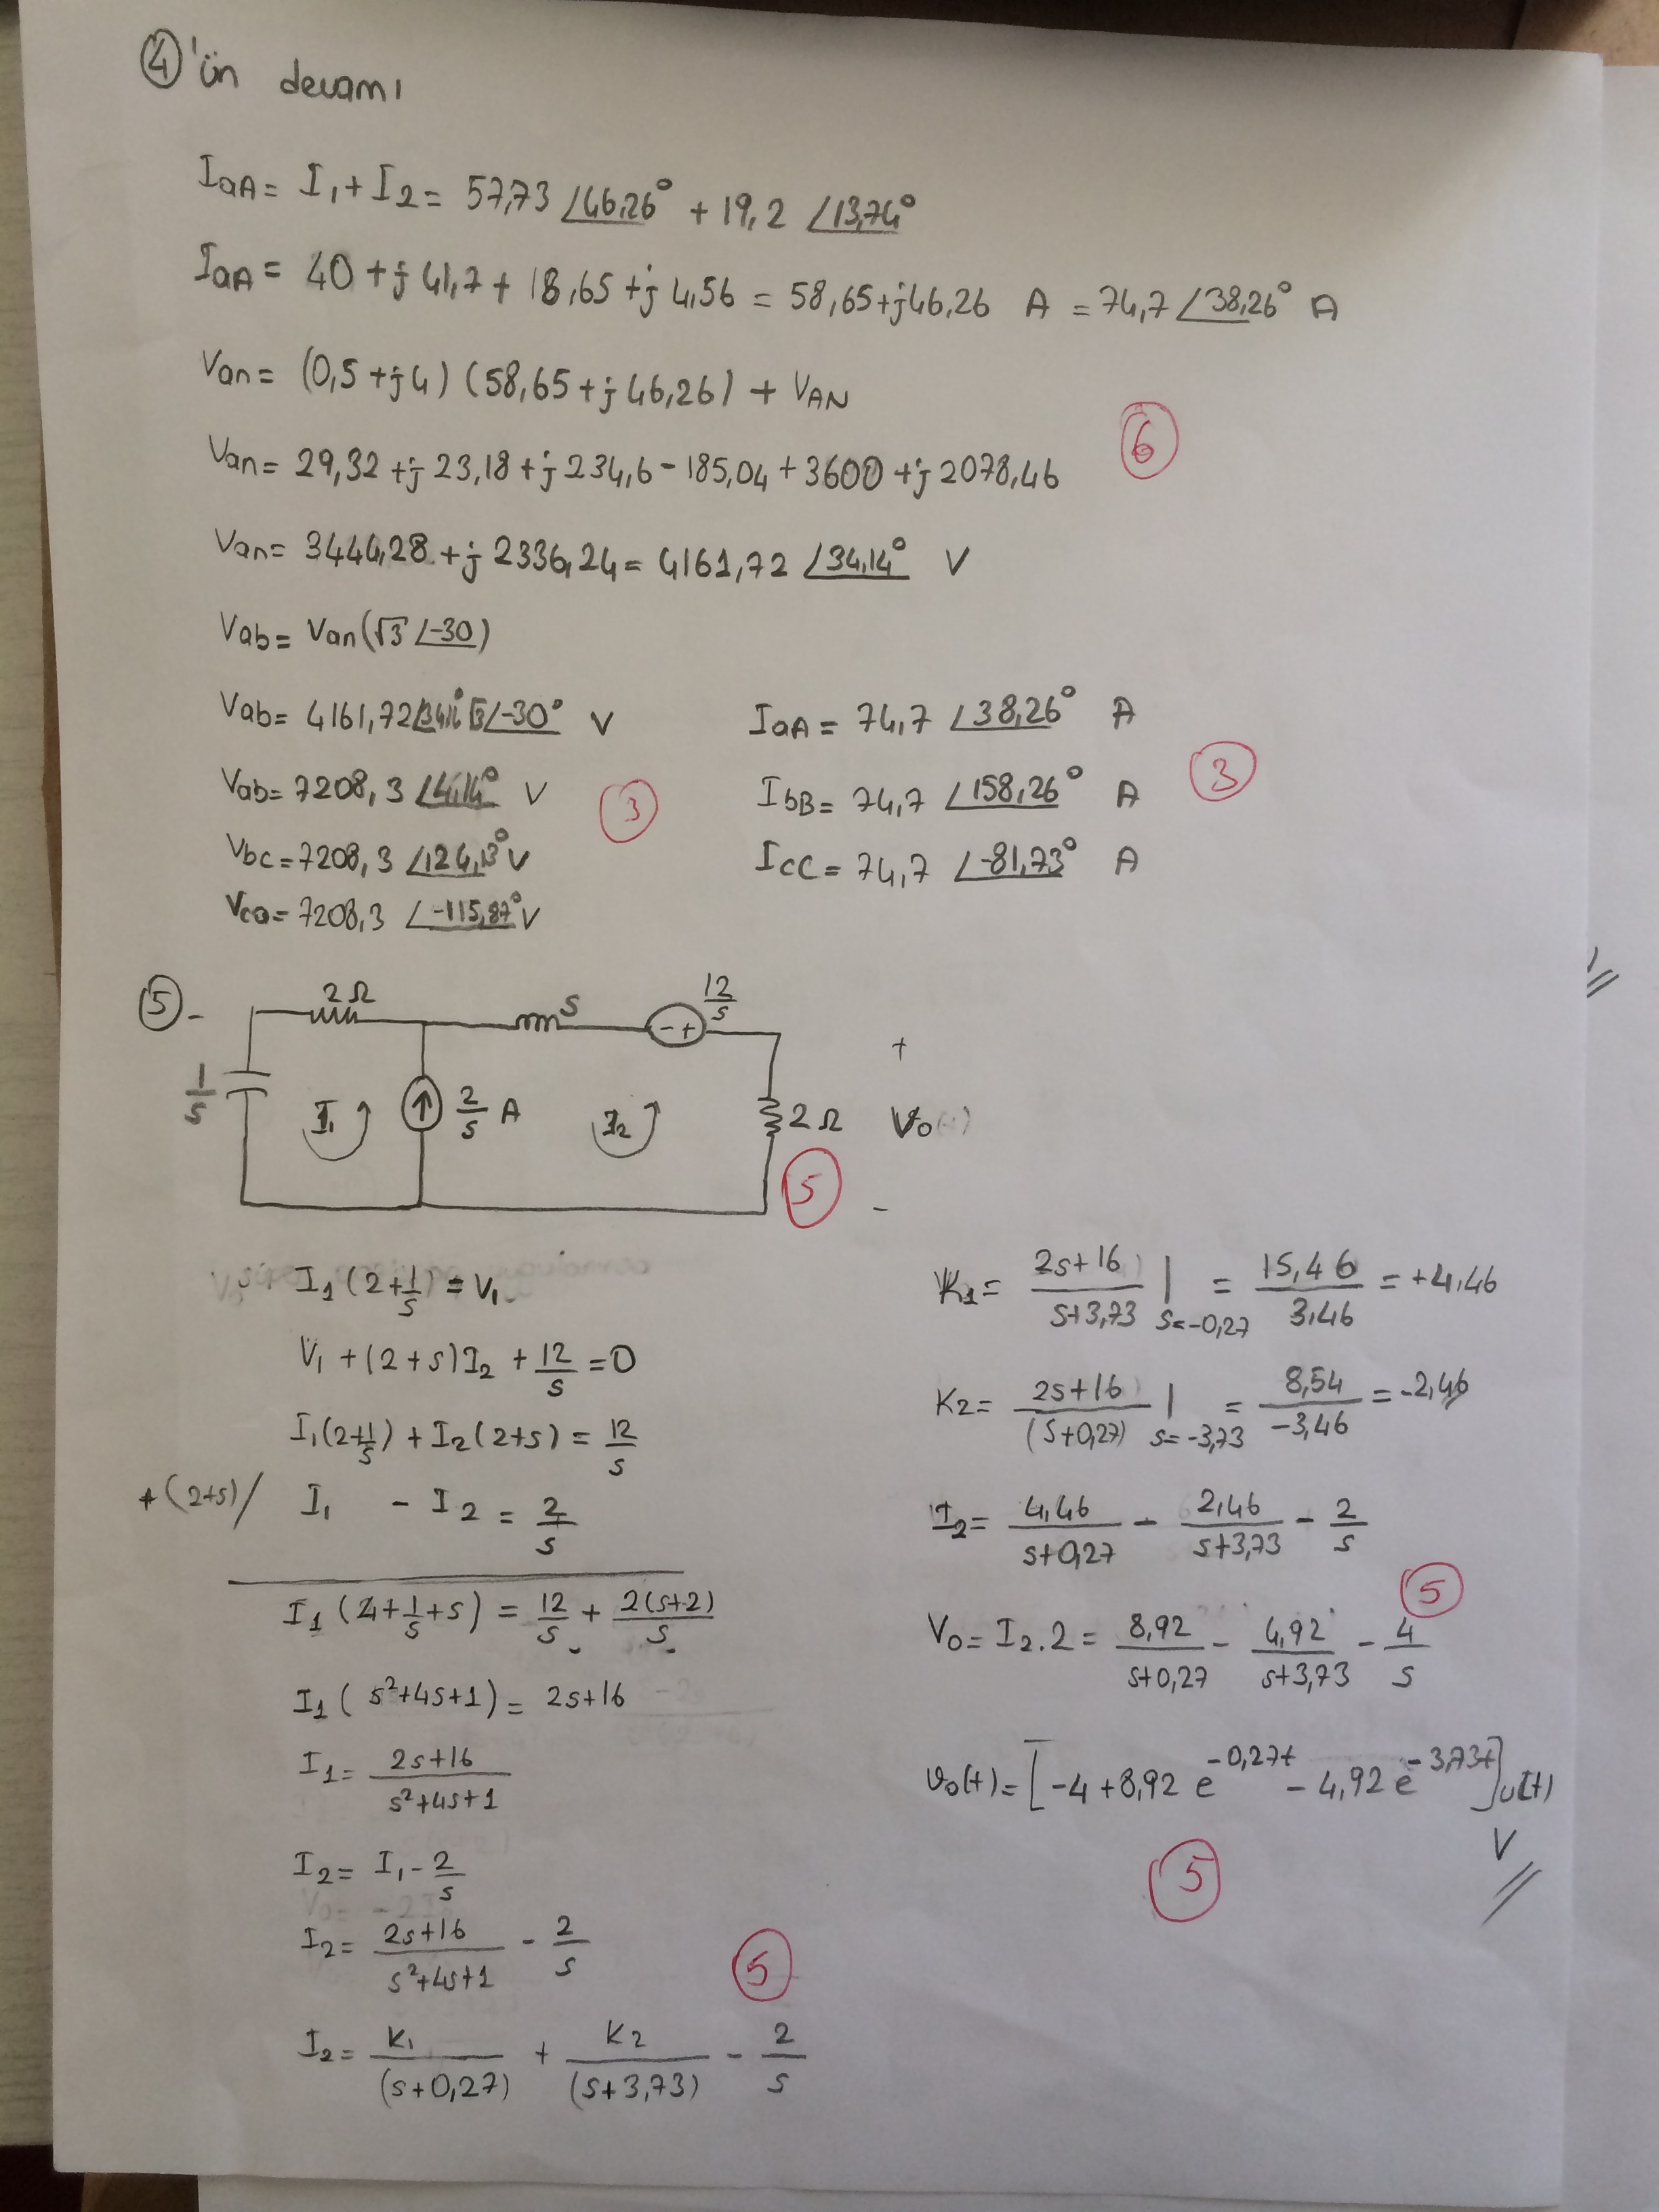 ④'ün devamı
IaA = I₁ + I₂ = 57,73 ∠46,26° + 19,2 ∠13,74°
IaA = 40 + j 41,7 + 18,65 + j 4,56 = 58,65 + j46,26 A = 74,7 ∠38,26° A
Van = (0,5 + j4) (58,65 + j 46,26) + VAN
6
Van = 29,32 + j 23,18 + j 234,6 - 185,04 + 3600 + j 2078,46
Van = 3444,28 + j 2336,24 = 4161,72 ∠34,14° V
Vab = Van(√3 ∠-30)
Vab = 4161,72 ∠34,14° √3 ∠-30° V
Vab = 7208,3 ∠4,14° V
Vbc = 7208,3 ∠124,13° V
Vca = 7208,3 ∠-115,87° V
3
IaA = 74,7 ∠38,26° A
IbB = 74,7 ∠158,26° A
IcC = 74,7 ∠-81,73° A
3
⑤-
2Ω
s
- +
12/s
1/s
I₁
2/s A
I₂
2Ω
+
Vo
-
5
I₁ (2 + 1/s) = V₁
V₁ + (2+s)I₂ + 12/s = 0
I₁(2+1/s) + I₂(2+s) = 12/s
+(2+s)/ I₁ - I₂ = 2/s
I₁ (4 + 1/s + s) = 12/s + 2(s+2)/s
I₁ (s²+4s+1) = 2s+16
I₁ = 2s+16 / s²+4s+1
I₂ = I₁ - 2/s
I₂ = 2s+16 / s²+4s+1 - 2/s
5
I₂ = K₁/(s+0,27) + K₂/(s+3,73) - 2/s
K₁ = 2s+16 / s+3,73 | s=-0,27 = 15,46/3,46 = +4,46
K₂ = 2s+16 / (s+0,27) | s=-3,73 = 8,54/-3,46 = -2,46
I₂ = 4,46/s+0,27 - 2,46/s+3,73 - 2/s
5
Vo = I₂.2 = 8,92/s+0,27 - 4,92/s+3,73 - 4/s
vo(t) = [-4 + 8,92 e^-0,27t - 4,92 e^-3,73t] u(t)
V
5